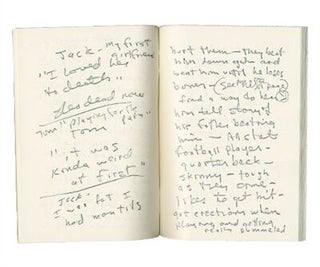 Jack - My first
girlfriend
"I loved her
to death"
dead now
Tom "playing for the
Tom
", it was
kinda weird
at first"
Jack:
I was but I
had man tits
hurt them - They beat
him down again and
beat him until he loses
boner - (See the page
find a way to hear
him tell story
his father beating
him - All state
football player -
quarterback -
skinny - tough
as they come -
likes to get hit -
got erections when
playing and getting
really pummeled